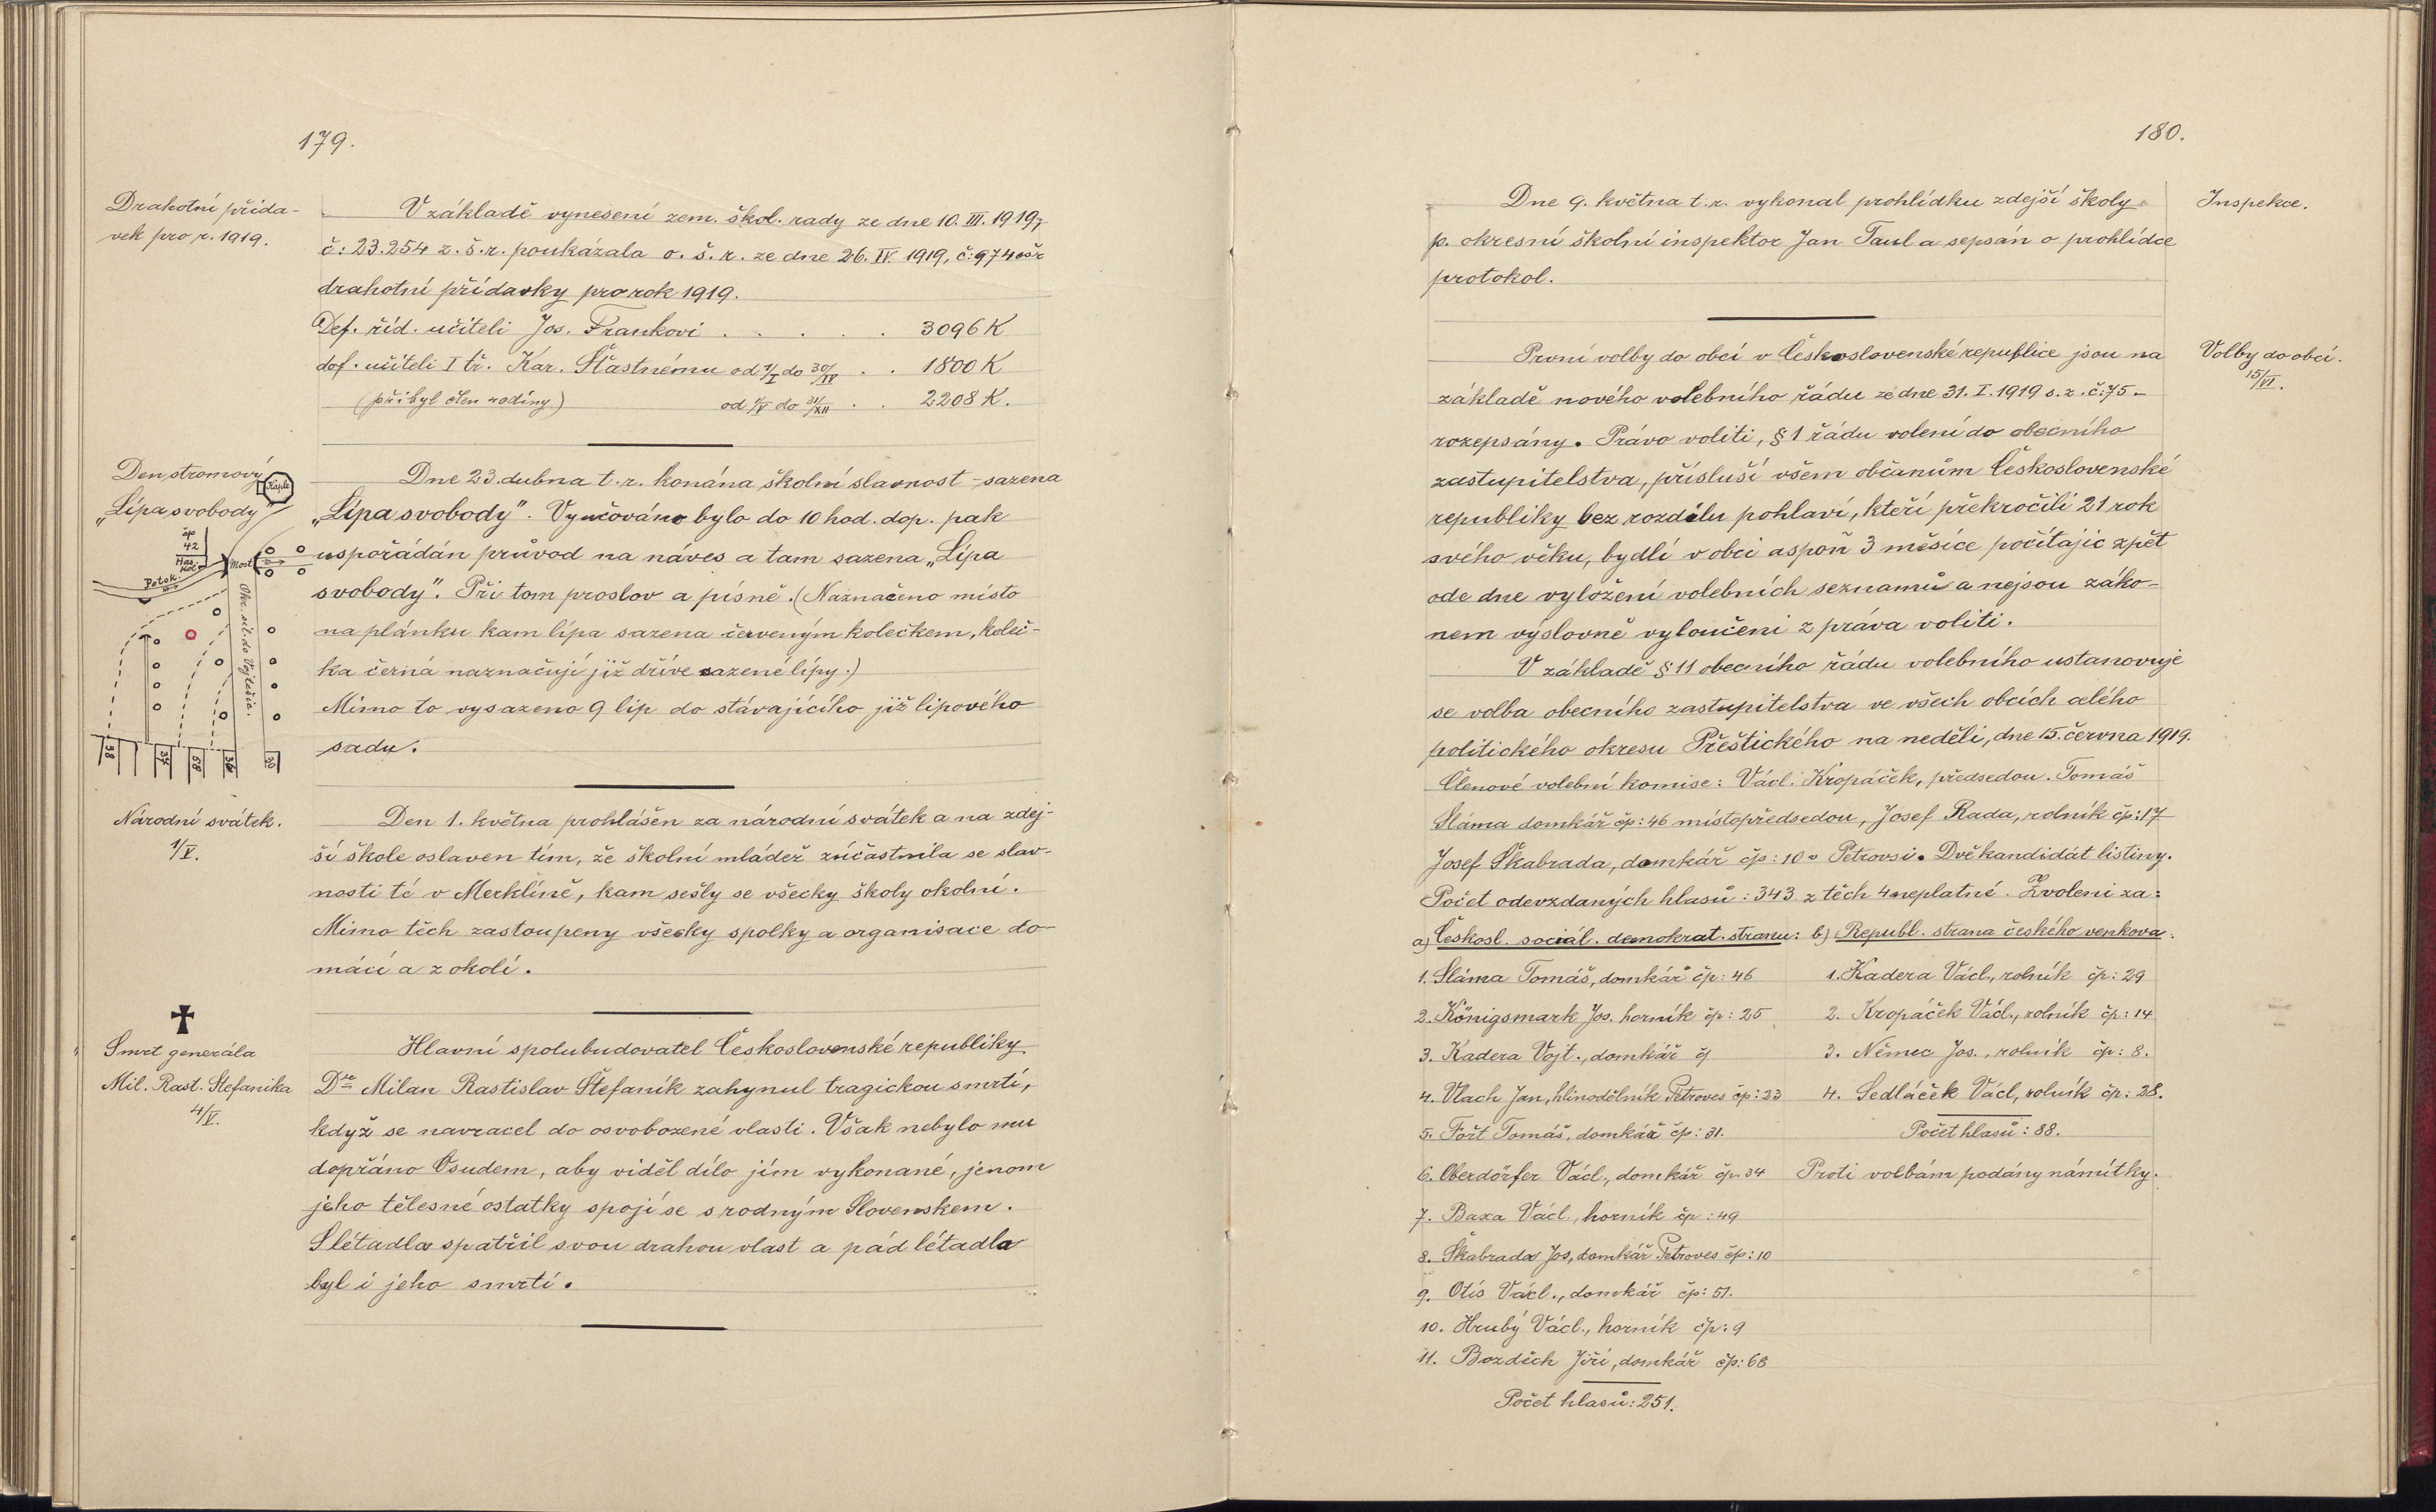 179.
Drahotní přída-
vek pro r. 1919.
V základě vynesení zem. škol. rady ze dne 10. III. 1919,
č: 23.254 z. š. r. poukázala o. š. r. ze dne 26. IV. 1919, č: 974 ošr
drahotní přídavky pro rok 1919.
Def. říd. učiteli Jos. Frankovi . . . . . 3096 K
def. učiteli I tř. Kar. Šťastnému od 1/I do 30/IV . . 1800 K
(přibyl člen rodiny) od 1/V do 31/XII . . 2208 K.
Den stromový
„Lípa svobody"
Kaple
čp
42
Has.
kol.
Most
Potok.
Okr. sil. do Vojtěšic.
38
37
58
36
30
Dne 23. dubna t. r. konána školní slavnost - sazena
„Lípa svobody". Vyučováno bylo do 10 hod. dop. pak
uspořádán průvod na náves a tam sazena „Lípa
svobody". Při tom proslov a písně. (Naznačeno místo
na plánku kam lípa sazena červeným kolečkem, koleč-
ka černá naznačují již dříve sazené lípy.)
Mimo to vysazeno 9 lip do stávajícího již lipového
sadu.
Národní svátek.
1/V.
Den 1. května prohlášen za národní svátek a na zdej-
ší škole oslaven tím, že školní mládež zúčastnila se slav-
nosti té v Merklíně, kam sešly se všecky školy okolní.
Mimo těch zastoupeny všecky spolky a organisace do-
mácí a z okolí.
Smrt generála
Mil. Rast. Štefanika
4/V.
Hlavní spolubudovatel Československé republiky
Dr Milan Rastislav Štefaník zahynul tragickou smrtí,
když se navracel do osvobozené vlasti. Však nebylo mu
dopřáno Osudem, aby viděl dílo jím vykonané, jenom
jeho tělesné ostatky spojí se s rodným Slovenskem.
S létadla spatřil svou drahou vlast a pád létadla
byl i jeho smrtí.
180.
Dne 9. května t. r. vykonal prohlídku zdejší školy
p. okresní školní inspektor Jan Taul a sepsán o prohlídce
protokol.
Inspekce.
První volby do obcí v Československé republice jsou na
základě nového volebního řádu ze dne 31. I. 1919 s. z. č: 75 -
rozepsány. Právo voliti, § 1 řádu volení do obecního
zastupitelstva, přísluší všem občanům Československé
republiky bez rozdílu pohlaví, kteří překročili 21 rok
svého věku, bydlí v obci aspoň 3 měsíce počítajíc zpět
ode dne vyložení volebních seznamů a nejsou záko-
nem výslovně vyloučeni z práva voliti.
Volby do obcí.
15/VI.
V základě § 11 obecního řádu volebního ustanovuje
se volba obecního zastupitelstva ve všech obcích celého
politického okresu Přeštického na neděli, dne 15. června 1919.
Členové volební komise: Václ. Kropáček, předsedou. Tomáš
Sláma domkář čp: 46 místopředsedou, Josef Rada, rolník čp: 17
Josef Škabrada, domkář čp: 10 v Petrovsi. Dvě kandidát listiny.
Počet odevzdaných hlasů: 343 z těch 4 neplatné. Zvoleni za:
a) Českosl. sociál. demokrat. stranu: b) Republ. strana českého venkova:
1. Sláma Tomáš, domkář čp: 46 1. Kadera Václ., rolník čp: 29
2. Königsmark Jos. horník čp: 25 2. Kropáček Václ., rolník čp: 14
3. Kadera Vojt., domkář čj 3. Němec Jos., rolník čp: 8.
4. Vlach Jan, hlinodělník Petroves čp: 23 4. Sedláček Václ, rolník čp: 28.
5. Fořt Tomáš, domkář čp: 31. Počet hlasů: 88.
6. Oberdörfer Václ., domkář čp. 34 Proti volbám podány námitky.
7. Baxa Václ., horník čp: 49
8. Škabrada Jos, domkář Petroves čp: 10
9. Otis Václ., domkář čp: 51.
10. Hrubý Václ., horník čp: 9
11. Bozděch Jiří, domkář čp: 68
Počet hlasů: 251.